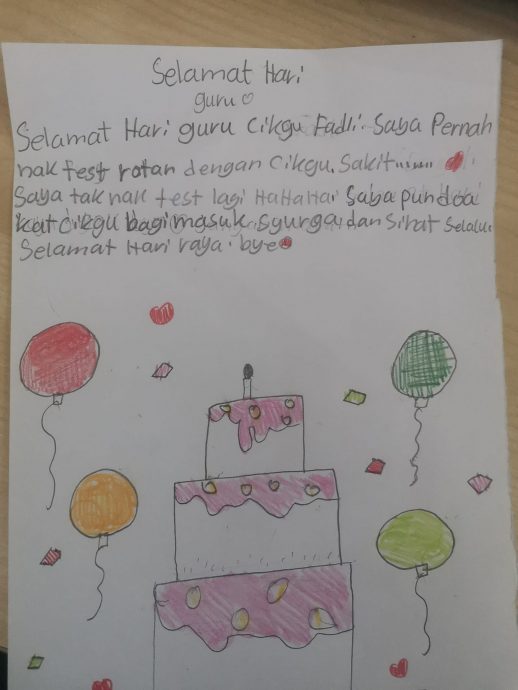 Selamat Hari
guru
Selamat Hari guru Cikgu Fadli. Saya Pernah
nak test rotan dengan Cikgu. Sakit........
Saya tak nak test lagi HaHaHa! Saya pun doa
kat cikgu bagi masuk syurga dan Sihat Selalu.
Selamat Hari raya. bye